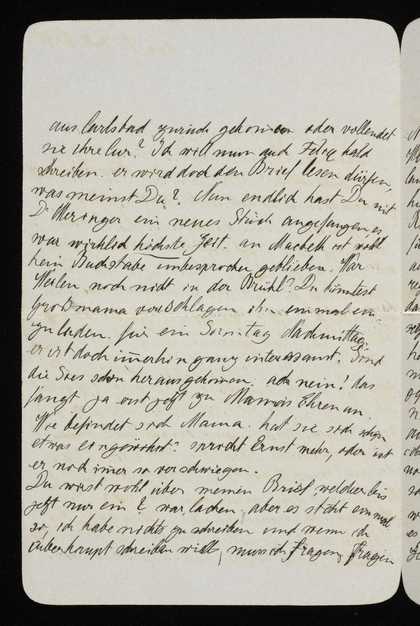 aus Carlsbad zurück gekommen oder vollendet
sie ihre Cur? Ich will nun auch Felix bald
schreiben. er wird doch den Brief lesen dürfen,
was meinst Du? Nun endlich hast Du mit
Dr ein neues Stück angefangen es
war wirklich höchste Zeit. an Macbeth ist wohl
kein Buchstabe unbesprochen geblieben. War
noch nicht in der Brühl? Du könntest
Grossmama vorschlagen, ihn einmal ein
zu laden. für ein Sonntag Nachmittag
er ist doch immerhin ganz interessant. Sind
die schon herausgekommen. ach nein! das
fängt ja erst jetzt zu Mamas Ehren an.
Wie befindet sich Mama. hat sie sich schon
etwas eingewöhnt? spricht Ernst mehr, oder ist
er noch immer so verschwiegen.
Du wirst wohl über meinen Brief, welcher bis
jetzt nur ein ? war, lachen, aber es ist einmal
so, ich habe nichts zu schreiben und wenn ich
überhaupt schreiben will, muss ich fragen, fragen